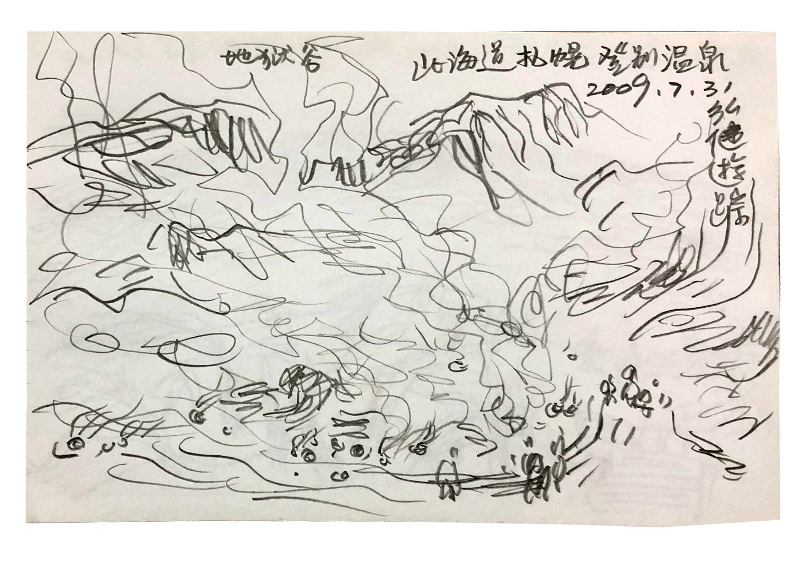 地狱谷
北海道札幌登别温泉
2009.7.31
弘健遊踪